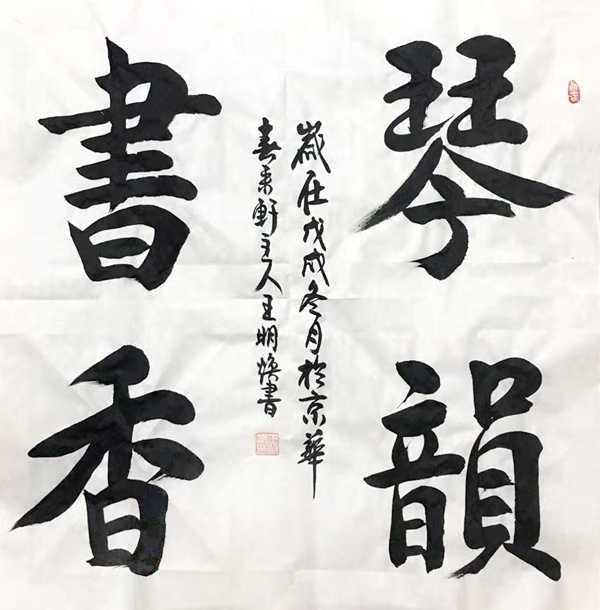 琴韻
書香
歲在戊戌冬月於京華
春來軒主人王明煥書